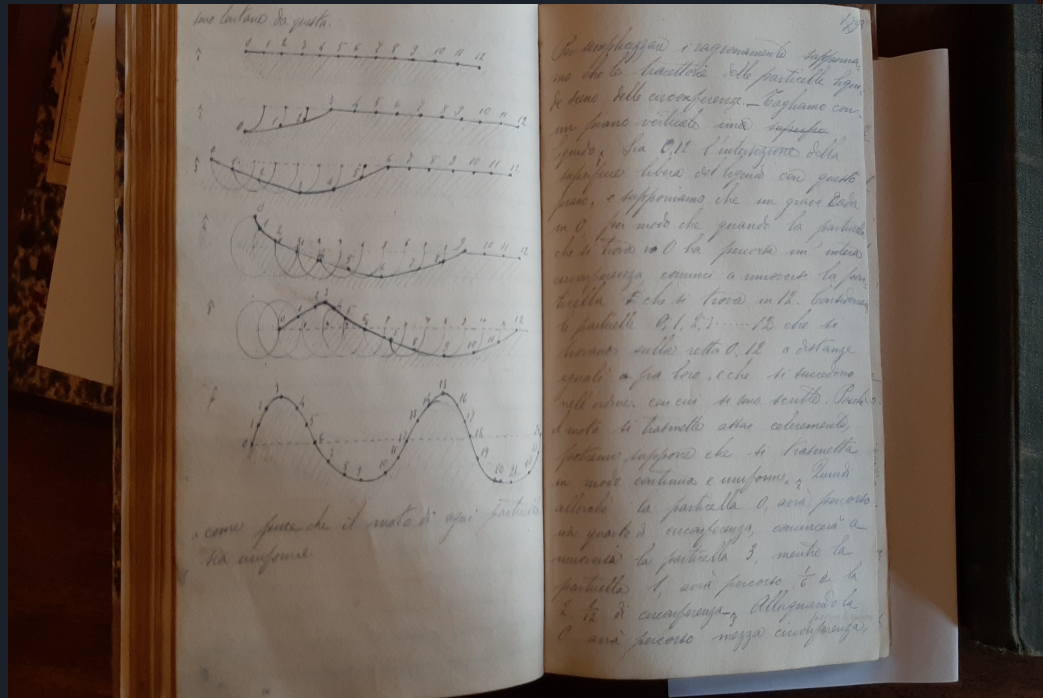 sono lontano da questa.
0 1 2 3 4 5 6 7 8 9 10 11 12
0 1 2 3 4 5 6 7 8 9 10 11 12
0 6 7 8 9 10 11 12
0 9 10 11 12
0 12
0 1 2 3 4 5 6 7 8 9 10 11 12 13 14 15 16 17 18 19 20 21
come pure che il moto di ogni particella
sia uniforme
Per semplizzare i ragionamenti supponia-
mo che le traiettorie delle particelle liqui-
de siano delle circonferenze. _ Tagliamo con
un piano verticale
Sia 0,12 l'intersezione della
superficie libera del liquido con questo
piano, e supponiamo che un grave cada
in 0, per modo che quando la particella
che si trova in 0 ha percorsa un' intera
circonferenza cominci a muoversi la par-
ticella che si trova in 12. Consideriamo
le particelle 0, 1, 2, 3 ...... 12 che si
trovano sulla retta 0,12 a distanze
eguali fra loro, e che si succedono
nell'ordine con cui si sono scritte. Poichè
il moto si trasmette assai celeremente,
potremo supporre che si trasmetta
in modo continuo e uniforme. Quindi
allorchè la particella 0, avrà percorso
un quarto di circonferenza, comincerà a
muoversi la particella 3, mentre la
particella 1, avrà percorso 1/6 e la
2 1/12 di circonferenza. _ Allorquando la
0 avrà percorso mezza circonferenza,